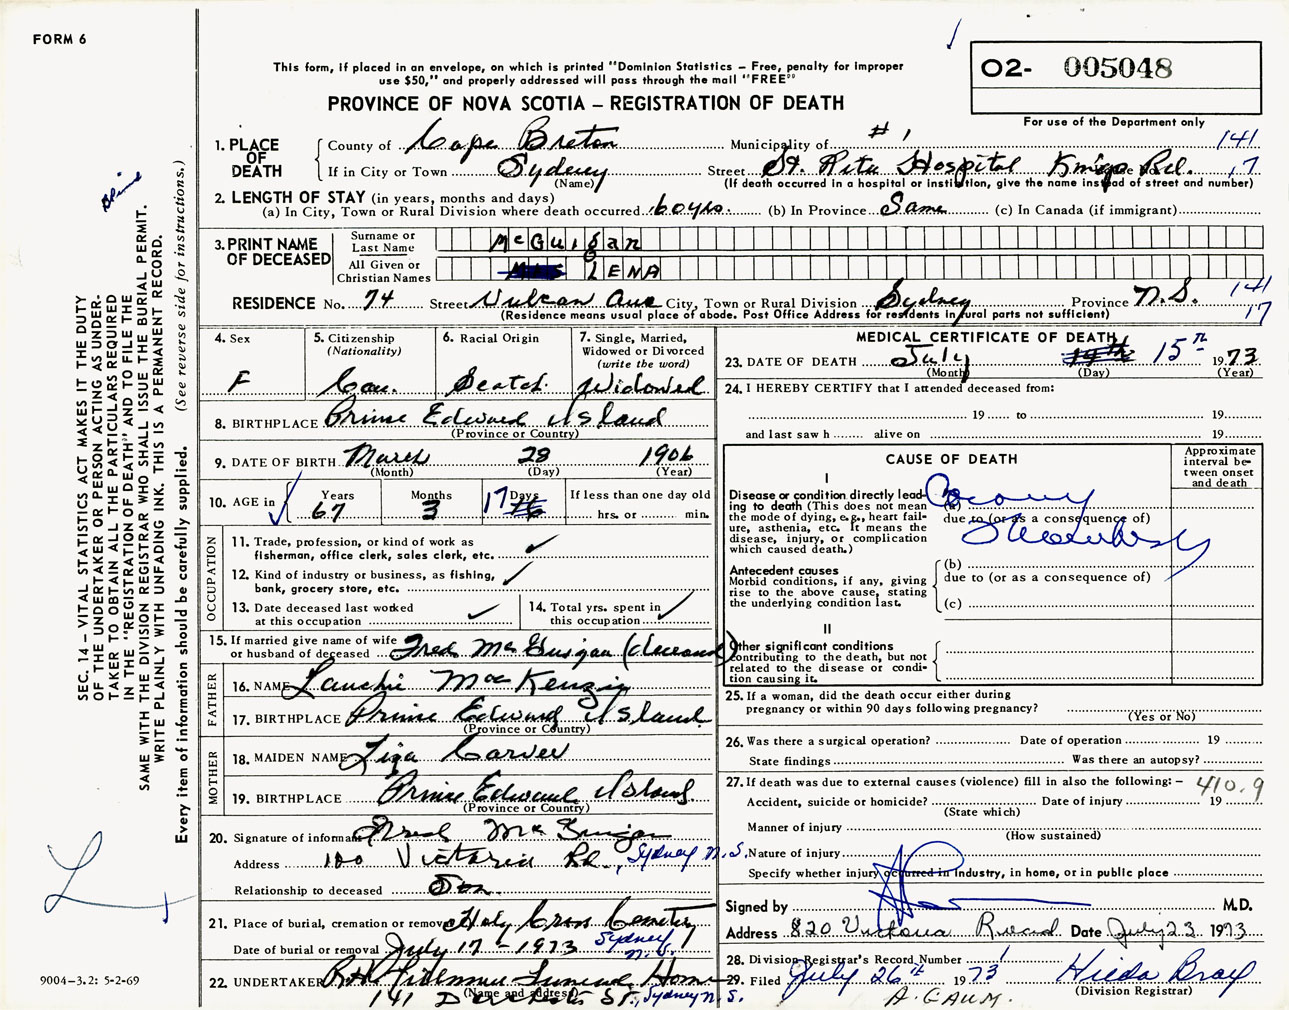 FORM 6
This form, if placed in an envelope, on which is printed "Dominion Statistics – Free, penalty for improper
use $50," and properly addressed will pass through the mail "FREE"
O2- 005048
For use of the Department only
PROVINCE OF NOVA SCOTIA – REGISTRATION OF DEATH
1. PLACE OF DEATH
County of Cape Breton Municipality of # 1 141
If in City or Town Sydney (Name) Street St. Rita Hospital Kings Rd. 17
(If death occurred in a hospital or institution, give the name instead of street and number)
2. LENGTH OF STAY (in years, months and days)
(a) In City, Town or Rural Division where death occurred 60 yrs. (b) In Province Same (c) In Canada (if immigrant)
3. PRINT NAME OF DECEASED
Surname or Last Name McGuigan
All Given or Christian Names LENA
RESIDENCE No. 74 Street Vulcan Ave City, Town or Rural Division Sydney Province N.S. 141
(Residence means usual place of abode. Post Office Address for residents in rural parts not sufficient) 17
4. Sex F
5. Citizenship (Nationality) Can.
6. Racial Origin Scotch
7. Single, Married, Widowed or Divorced (write the word) Widowed
8. BIRTHPLACE Prince Edward Island
(Province or Country)
9. DATE OF BIRTH March 28 1906
(Month) (Day) (Year)
10. AGE in Years 67 Months 3 Days 17 If less than one day old
hrs. or min.
OCCUPATION
11. Trade, profession, or kind of work as
fisherman, office clerk, sales clerk, etc.
12. Kind of industry or business, as fishing,
bank, grocery store, etc.
13. Date deceased last worked
at this occupation
14. Total yrs. spent in
this occupation
15. If married give name of wife
or husband of deceased Fred McGuigan (deceased)
FATHER
16. NAME Lauchie MacKenzie
17. BIRTHPLACE Prince Edward Island
(Province or Country)
MOTHER
18. MAIDEN NAME Liza Carver
19. BIRTHPLACE Prince Edward Island
(Province or Country)
20. Signature of informant Fred McGuigan
Address 100 Victoria Rd., Sydney N.S.
Relationship to deceased Son
21. Place of burial, cremation or removal Holy Cross Cemetery
Date of burial or removal July 17 - 1973 Sydney N.S.
22. UNDERTAKER Funeral Home
(Name and address) 141 St., Sydney N.S.
MEDICAL CERTIFICATE OF DEATH
23. DATE OF DEATH July 15th 1973
(Month) (Day) (Year)
24. I HEREBY CERTIFY that I attended deceased from:
19 to 19
and last saw h alive on 19
CAUSE OF DEATH
Approximate interval between onset and death
I
Disease or condition directly leading
to death (This does not mean
the mode of dying, e.g., heart failure,
asthenia, etc. It means the
disease, injury, or complication
which caused death.)
(a) Coronary
due to (or as a consequence of)
Thrombosis
Antecedent causes
Morbid conditions, if any, giving
rise to the above cause, stating
the underlying condition last.
(b)
due to (or as a consequence of)
(c)
II
Other significant conditions
contributing to the death, but not
related to the disease or condition
causing it.
25. If a woman, did the death occur either during
pregnancy or within 90 days following pregnancy?
(Yes or No)
26. Was there a surgical operation? Date of operation 19
State findings Was there an autopsy?
27. If death was due to external causes (violence) fill in also the following: – 410.9
Accident, suicide or homicide? Date of injury 19
(State which)
Manner of injury
(How sustained)
Nature of injury
Specify whether injury occurred in industry, in home, or in public place
Signed by M.D.
Address 820 Victoria Road Date July 23 1973
28. Division Registrar's Record Number
29. Filed July 26th 1973 Hilda Bray
(Division Registrar)
SEC. 14 – VITAL STATISTICS ACT MAKES IT THE DUTY
OF THE UNDERTAKER OR PERSON ACTING AS UNDERTAKER
TO OBTAIN ALL THE PARTICULARS REQUIRED
IN THE "REGISTRATION OF DEATH" AND TO FILE THE
SAME WITH THE DIVISION REGISTRAR WHO SHALL ISSUE THE BURIAL PERMIT.
WRITE PLAINLY WITH UNFADING INK. THIS IS A PERMANENT RECORD.
Every item of information should be carefully supplied. (See reverse side for instructions.)
9004–3.2: 5-2-69